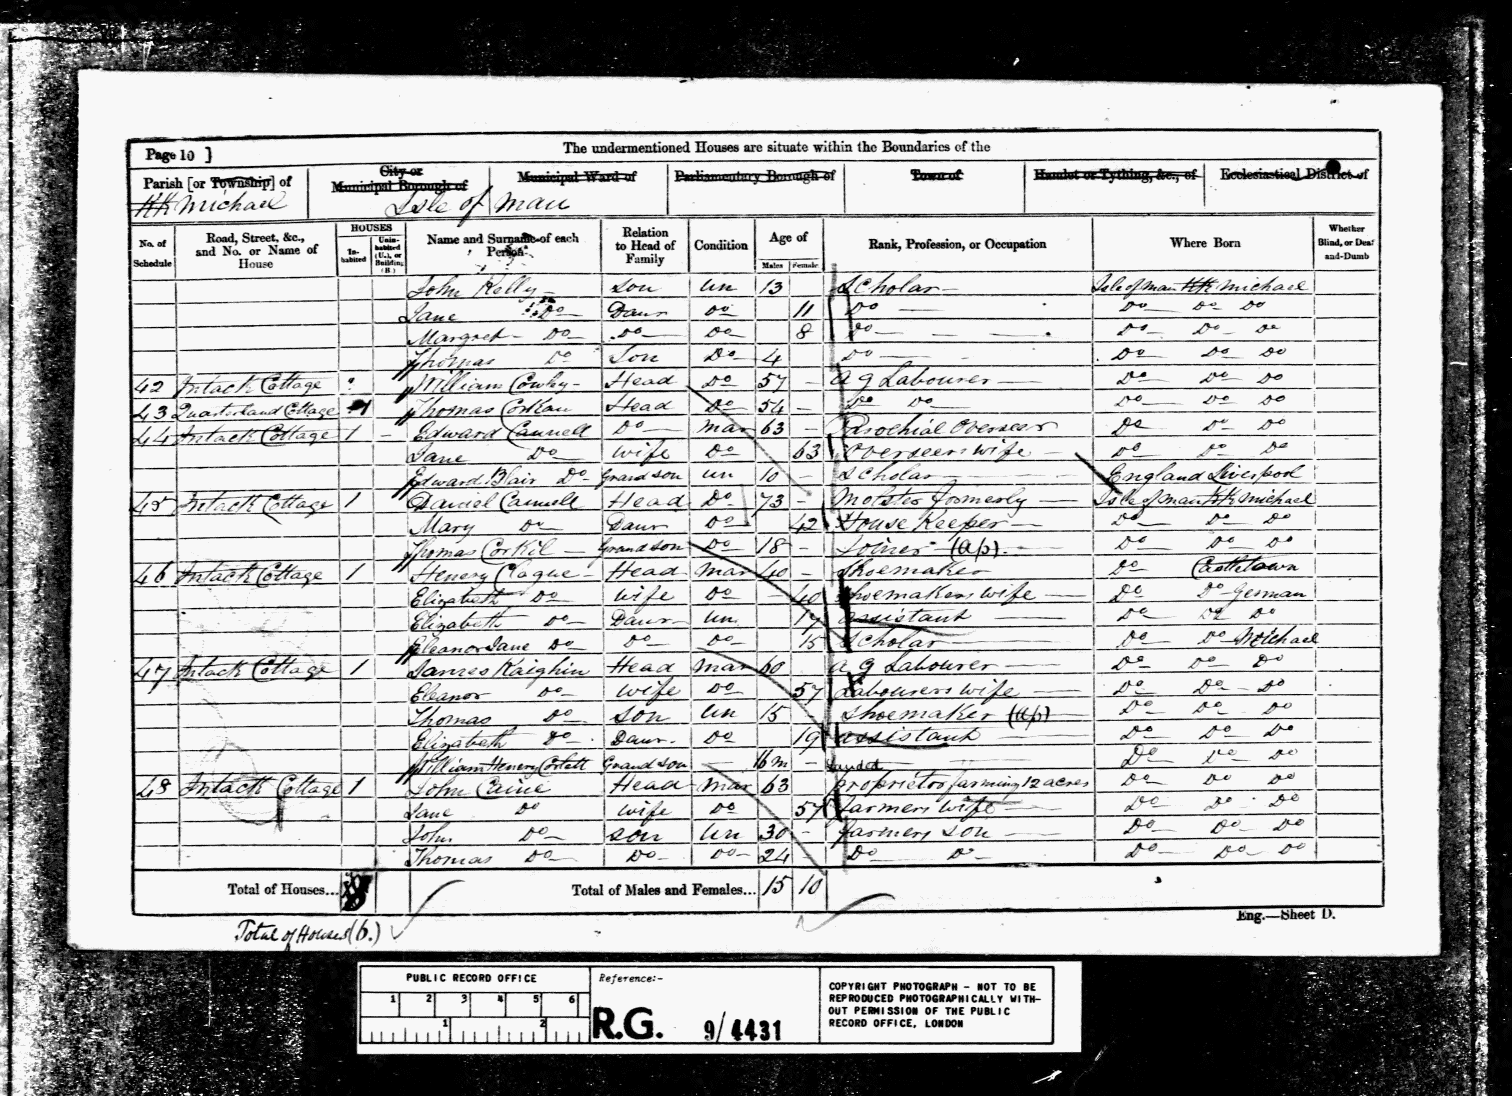 Page 10 ]
The undermentioned Houses are situate within the Boundaries of the
Parish [or Township] of
Kk Michael
City or
Municipal Borough of
Isle of Man
Municipal Ward of
Parliamentary Borough of
Town of
Hamlet or Tything, &c., of
Ecclesiastical District of
No. of Schedule
Road, Street, &c., and No. or Name of House
HOUSES
In-habited
Unin-habited (U.), or Building (B.)
Name and Surname of each Person
Relation to Head of Family
Condition
Age of
Males
Females
Rank, Profession, or Occupation
Where Born
Whether Blind, or Deaf-and-Dumb
John Kelly Son Un 13 Scholar Isle of Man Kk Michael
Jane Do Daur Do 11 Do Do Do Do
Margret Do Do Do 8 Do Do Do Do
Thomas Do Son Do 4 Do Do Do Do
42 Intack Cottage William Cowley Head Do 57 Ag Labourer Do Do Do
43 Quarterland Cottage 1 Thomas Corkan Head Do 54 Do Do Do Do Do
44 Intack Cottage 1 Edward Cannell Do Mar 63 Parochial Overseer Do Do Do
Jane Do Wife Do 63 Overseers wife Do Do Do
Edward Blair Do Grand son Un 10 Scholar England Liverpool
45 Intack Cottage 1 Daniel Cannell Head Do 73 formerly Isle of Man Kk Michael
Mary Do Daur Do 42 House Keeper Do Do Do
Thomas Corkil Grand son Do 18 Joiner (Ap) Do Do Do
46 Intack Cottage 1 Henery Clague Head Mar 40 Shoemaker Do Castletown
Elizabeth Do Wife Do 40 Shoemakers wife Do Do German
Elizabeth Do Daur Un 17 assistant Do Do Do
Eleanor Jane Do Do Do 15 Scholar Do Do Michael
47 Intack Cottage 1 James Kaighin Head Mar 60 Ag Labourer Do Do Do
Eleanor Do Wife Do 57 Labourers wife Do Do Do
Thomas Do Son Un 15 Shoemaker (Ap) Do Do Do
Elizabeth Do Daur Do 19 assistant Do Do Do
William Henery Corlett Grand son 16m Do Do Do
48 Intack Cottage 1 John Caine Head Mar 63 Landed proprietor farming 12 acres Do Do Do
Jane Do Wife Do 57 Farmers wife Do Do Do
John Do Son Un 30 farmers son Do Do Do
Thomas Do Do Do 24 Do Do Do Do Do
Total of Houses...
Total of Males and Females... 15 10
Eng.—Sheet D.
Total of Houses (6.)
PUBLIC RECORD OFFICE
1 2 3 4 5 6
1 2
Reference:-
R.G. 9/4431
COPYRIGHT PHOTOGRAPH - NOT TO BE
REPRODUCED PHOTOGRAPHICALLY WITH-
OUT PERMISSION OF THE PUBLIC
RECORD OFFICE, LONDON